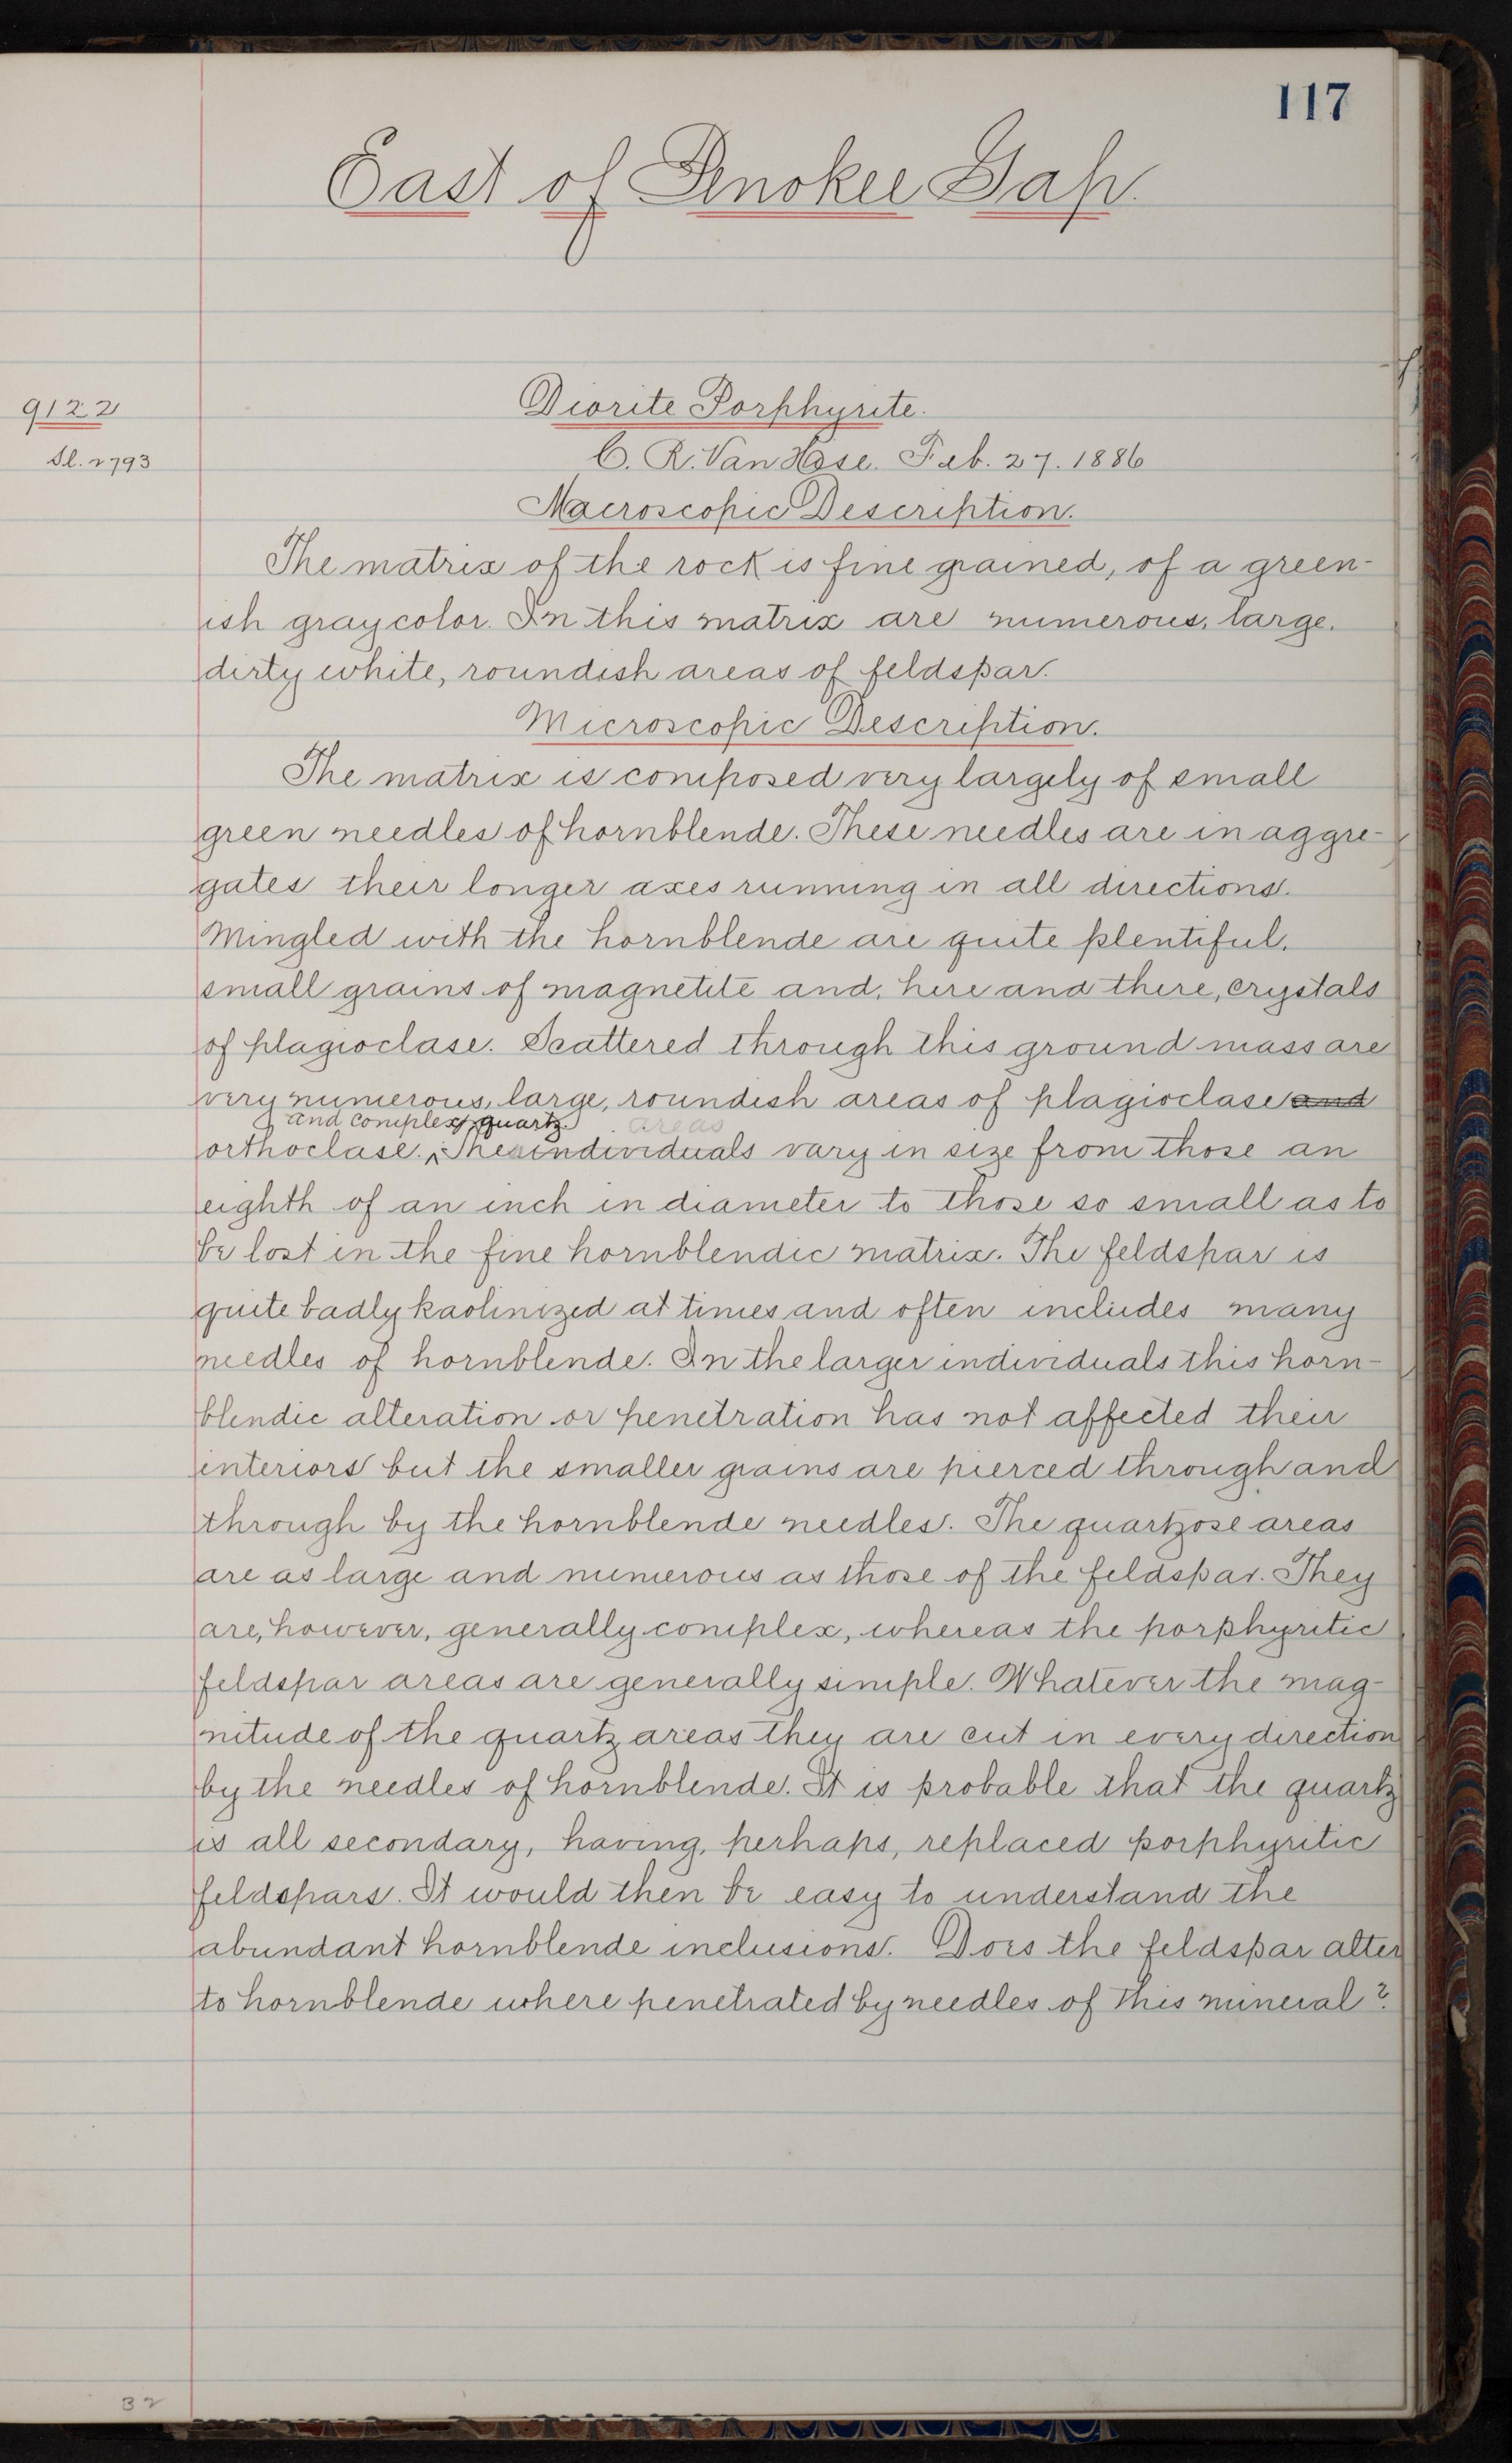 117
East of Penokee Gap.
9122
Diorite Porphyrite.
Sl. 2793
C. R. Van Hise. Feb. 27. 1886
Macroscopic Description.
The matrix of the rock is fine grained, of a green-
ish gray color. In this matrix are numerous, large,
dirty white, roundish areas of feldspar.
Microscopic Description.
The matrix is composed very largely of small
green needles of hornblende. These needles are in aggre-
gates their longer axes running in all directions.
Mingled with the hornblende are quite plentiful,
small grains of magnetite and, here and there, crystals
of plagioclase. Scattered through this ground mass are
very numerous, large, roundish areas of plagioclase and
and complex quartz. areas
orthoclase. The individuals vary in size from those an
eighth of an inch in diameter to those so small as to
be lost in the fine hornblendic matrix. The feldspar is
quite badly kaolinized at times and often includes many
needles of hornblende. In the larger individuals this horn-
blendic alteration or penetration has not affected their
interiors but the smaller grains are pierced through and
through by the hornblende needles. The quartzose areas
are as large and numerous as those of the feldspar. They
are, however, generally complex, whereas the porphyritic
feldspar areas are generally simple. Whatever the mag-
nitude of the quartz areas they are cut in every direction
by the needles of hornblende. It is probable that the quartz
is all secondary, having, perhaps, replaced porphyritic
feldspars. It would then be easy to understand the
abundant hornblende inclusions. Does the feldspar alter
to hornblende where penetrated by needles of this mineral?
32